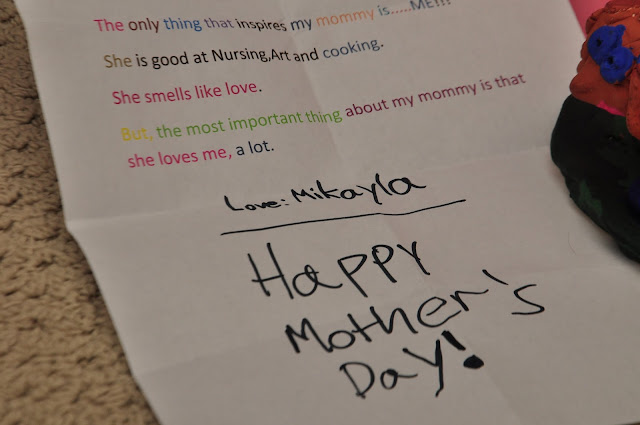 The only thing that inspires my mommy is.....ME!!!
She is good at Nursing,Art and cooking.
She smells like love.
But, the most important thing about my mommy is that
she loves me, a lot.
Love: Mikayla
Happy
Mother's
Day!